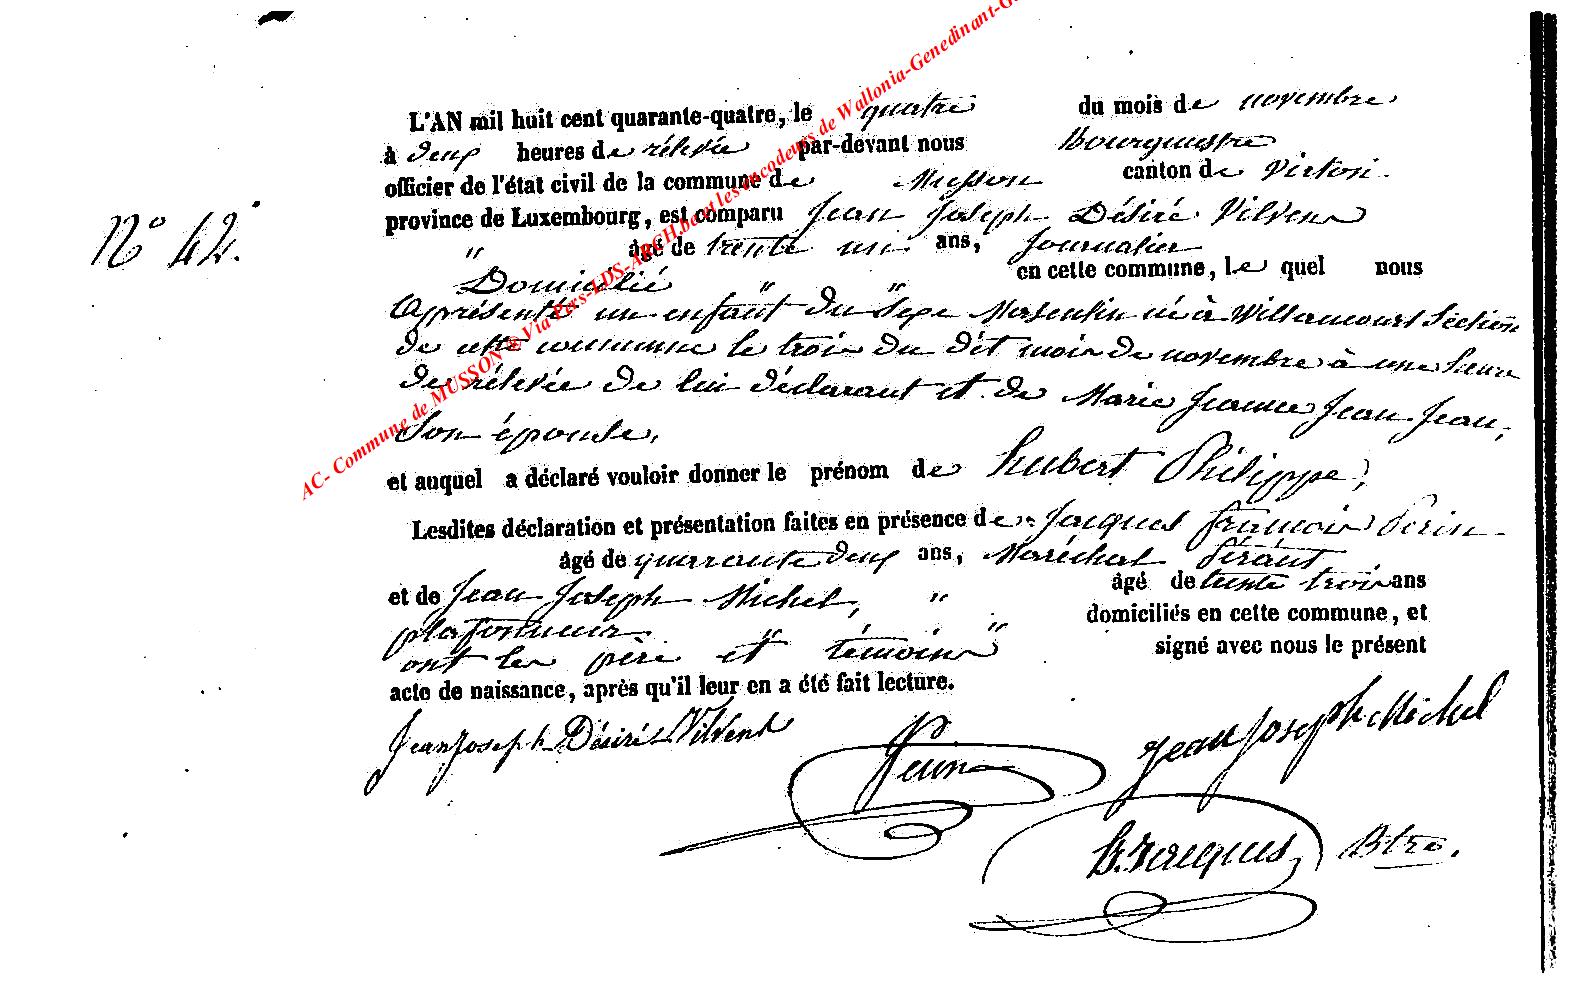 AC- Commune de MUSSON © Via Pers-LDS-ARCH.be et les encodeurs de Wallonia-Genedinant-G
L'AN mil huit cent quarante-quatre, le quatre du mois de novembre
à deux heures de rélevée par-devant nous Bourgmestre
officier de l'état civil de la commune de Musson canton de Virton.
province de Luxembourg, est comparu Jean Joseph Désiré Vilven
N° 42.
" âgé de trente un ans, Journalier
Domicilié " " en cette commune, le quel nous
a présenté un enfant du Sexe Masculin né à Willancourt Section
de cette commune le trois du dit mois de novembre à une heure
de rélevée de lui déclarant et de Marie Jeanne Jean Jean,
Son épouse,
et auquel a déclaré vouloir donner le prénom de hubert Philippe,
Lesdites déclaration et présentation faites en présence de Jacques françois Perin
âgé de quarante deux ans, Maréchal férant
et de Jean Joseph Michel, " âgé de trente trois ans
plafonneur " " domiciliés en cette commune, et
ont les père et témoins signé avec nous le présent
acte de naissance, après qu'il leur en a été fait lecture.
Jean Joseph Désiré Vilvent
Perin
Jean Joseph Michel
Jacques, Btre.